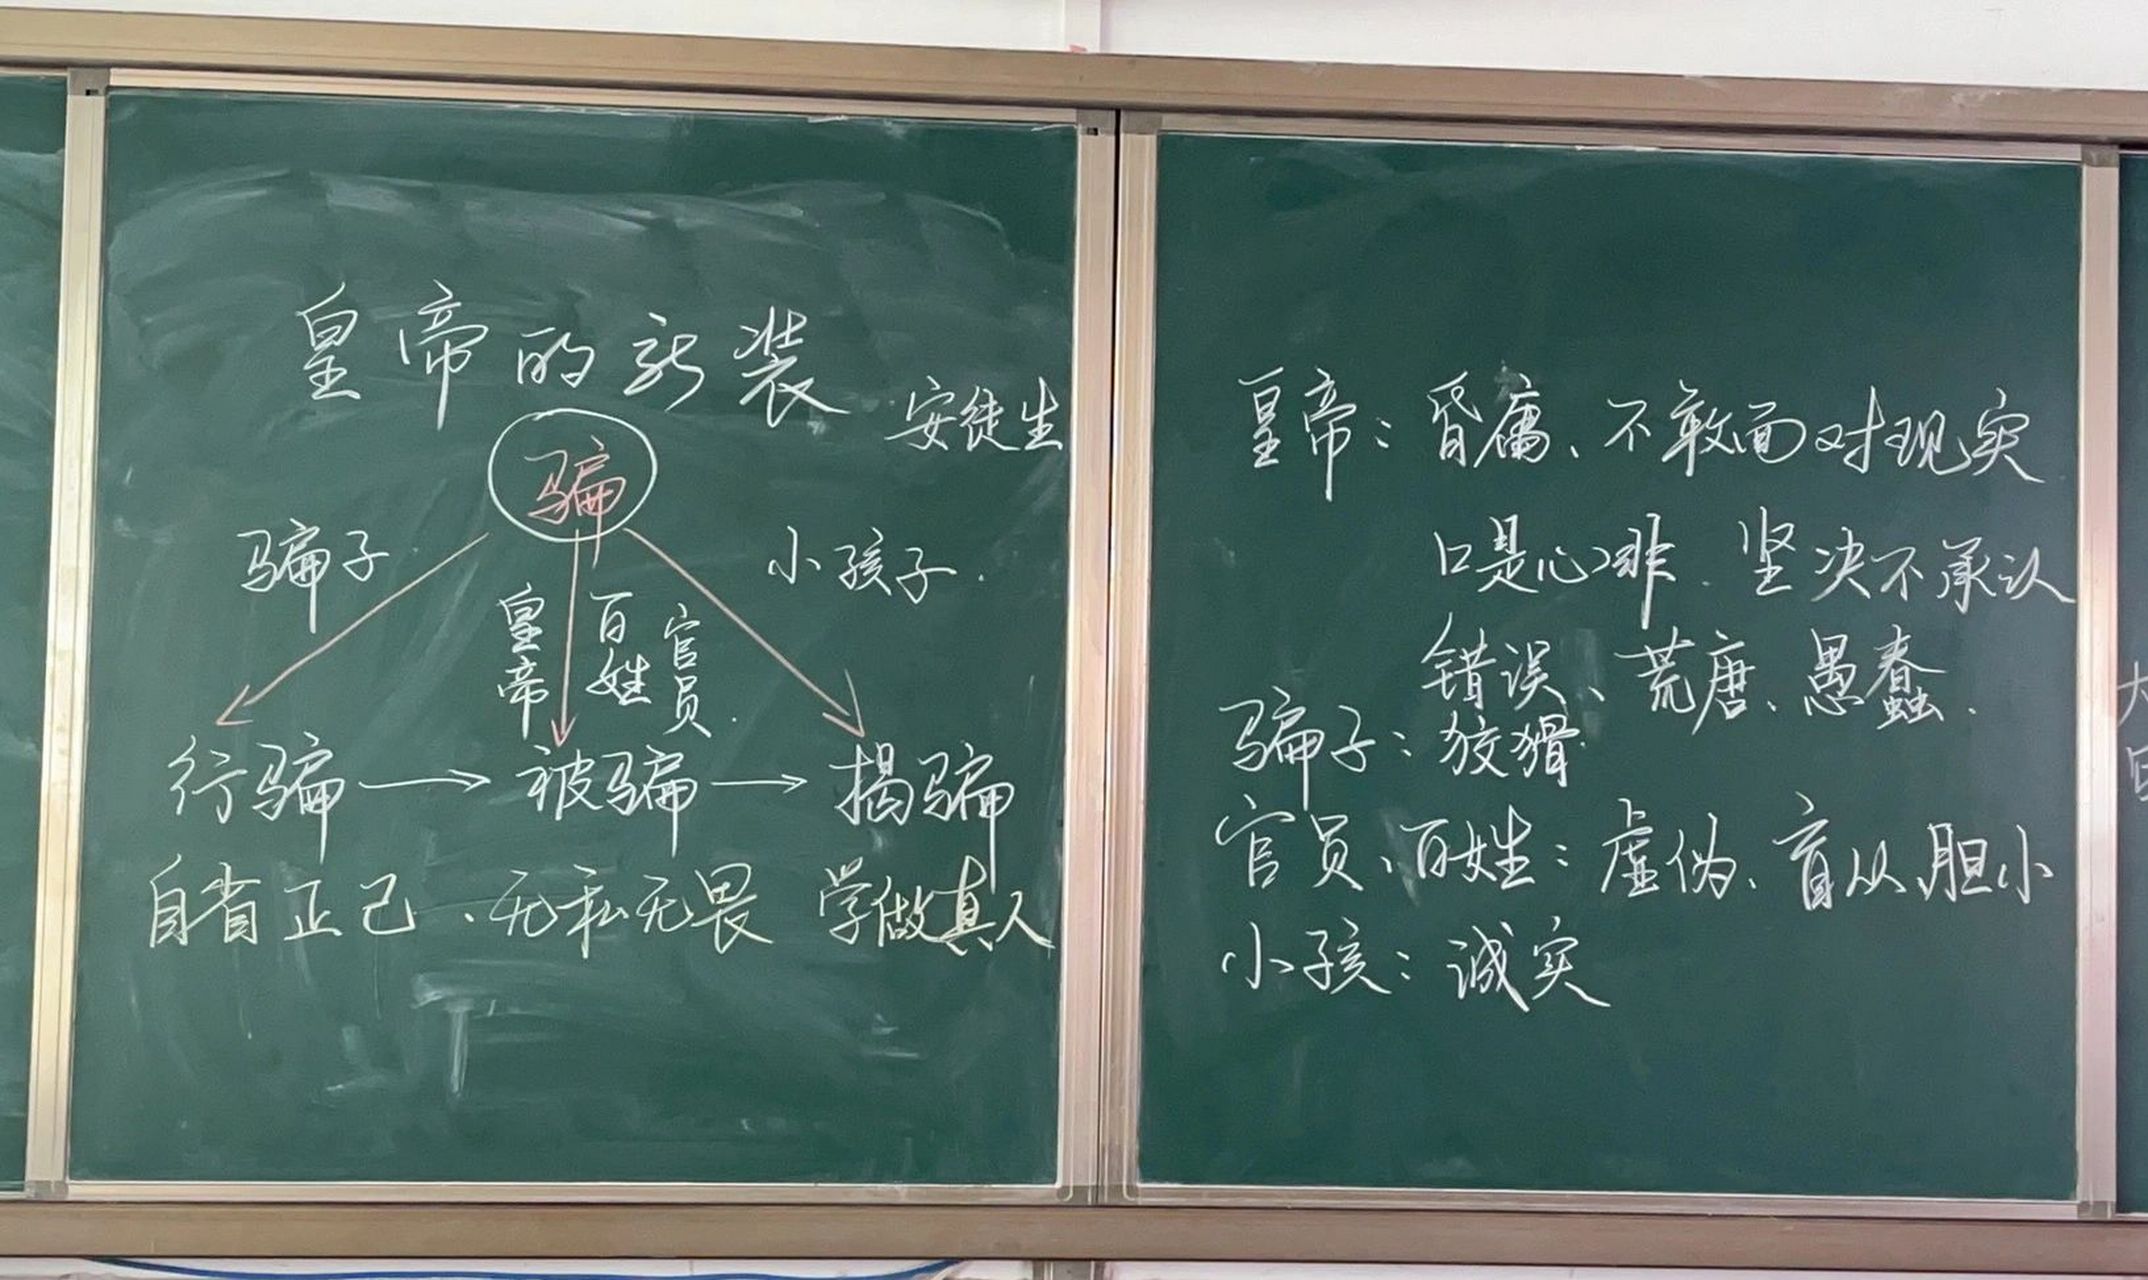 皇帝的新装
安徒生
骗
骗子
皇帝
百姓
官员.
小孩子.
行骗→被骗→揭骗
自省正己、无私无畏 学做真人
皇帝：昏庸、不敢面对现实
口是心非、坚决不承认
错误、荒唐、愚蠢.
骗子：狡猾.
官员、百姓：虚伪、盲从、胆小
小孩：诚实